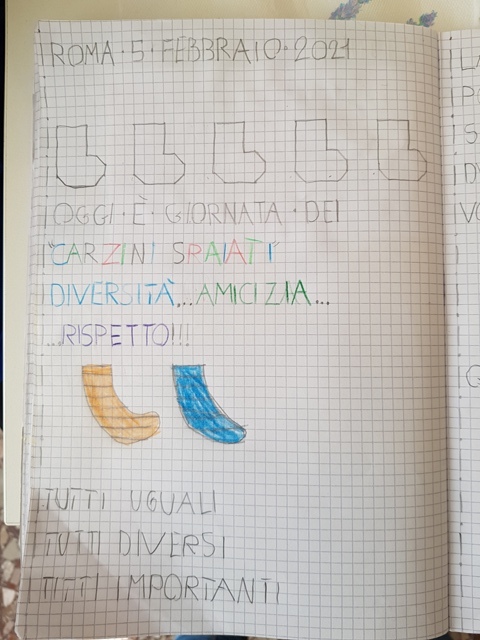 ROMA·5·FEBBRAIO·2021
OGGI·È·GIORNATA·DEI
"CARZINI SPAIATI"
DIVERSITÀ...AMICIZIA...
...RISPETTO!!!
TUTTI UGUALI
TUTTI DIVERSI
TITTI IMPORTANTI